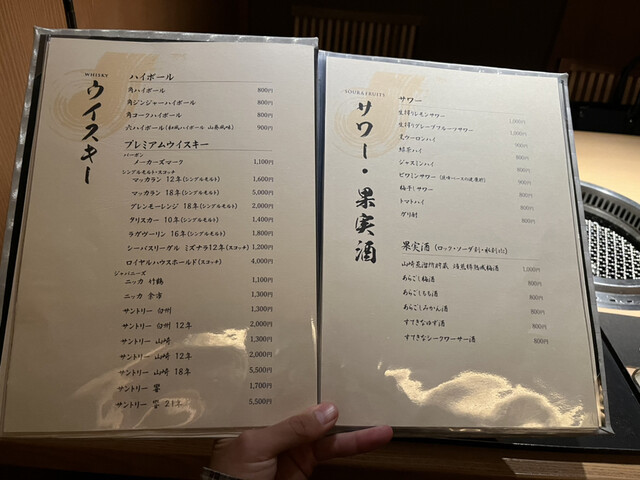 WHISKY
ウイスキー
ハイボール
角ハイボール 800円
角ジンジャーハイボール 800円
角コークハイボール 800円
六ハイボール(和風ハイボール 山椒風味) 900円
プレミアムウイスキー
バーボン
メーカーズマーク 1,100円
シングルモルト・スコッチ
マッカラン 12年(シングルモルト) 1,600円
マッカラン 18年(シングルモルト) 5,000円
グレンモーレンジ 18年(シングルモルト) 2,000円
タリスカー 10年(シングルモルト) 1,400円
ラグヴーリン 16年(シングルモルト) 1,800円
シーバスリーグル ミズナラ12年(スコッチ) 1,200円
ロイヤルハウスホールド(スコッチ) 4,000円
ジャパニーズ
ニッカ 竹鶴 1,100円
ニッカ 余市 1,300円
サントリー 白州 1,300円
サントリー 白州 12年 2,000円
サントリー 山崎 1,300円
サントリー 山崎 12年 2,000円
サントリー 山崎 18年 5,500円
サントリー 響 1,700円
サントリー 響 21年 5,500円
SOUR&FRUITS
サワー・果実酒
サワー
生搾りレモンサワー 1,000円
生搾りグレープフルーツサワー 1,000円
黒ウーロンハイ 900円
緑茶ハイ 800円
ジャスミンハイ 800円
ビワミンサワー 900円
梅干しサワー 800円
トマトハイ 800円
グリ酎 800円
果実酒 (ロック・ソーダ割・水割り)
山崎蒸溜所貯蔵 焙煎樽熟成梅酒 1,000円
あらごし梅酒 800円
あらごしもも酒 800円
あらごしみかん酒 800円
すてきなゆず酒 800円
すてきなシークワーサー酒 800円